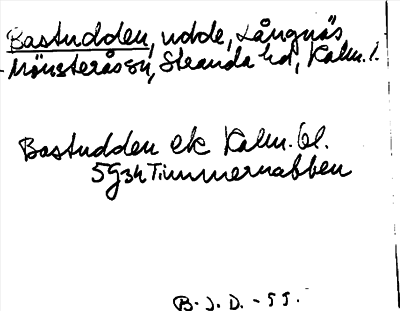 Bastudden, udde, Långnäs
Mönsterås sn, Stranda hd, Kalm. l.
Bastudden ek Kalm. bl.
5g3h Timmernabben
B. J. D. - 55.